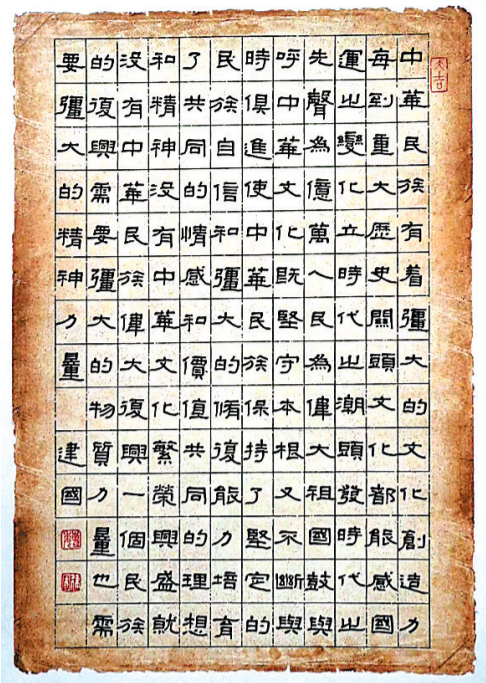 中華民族有着彊大的文化創造力
每到重大歷史關頭文化都能感國
運之變化立時代之潮頭發時代之
先聲為億萬人民為偉大祖國鼓與
呼中華文化既堅守本根又不斷與
時俱進使中華民族保持了堅定的
民族自信和彊大的脩復能力培育
了共同的情感和價值共同的理想
和精神沒有中華文化繁榮興盛就
沒有中華民族偉大復興一個民族
的復興需要彊大的物質力量也需
要彊大的精神力量 建國